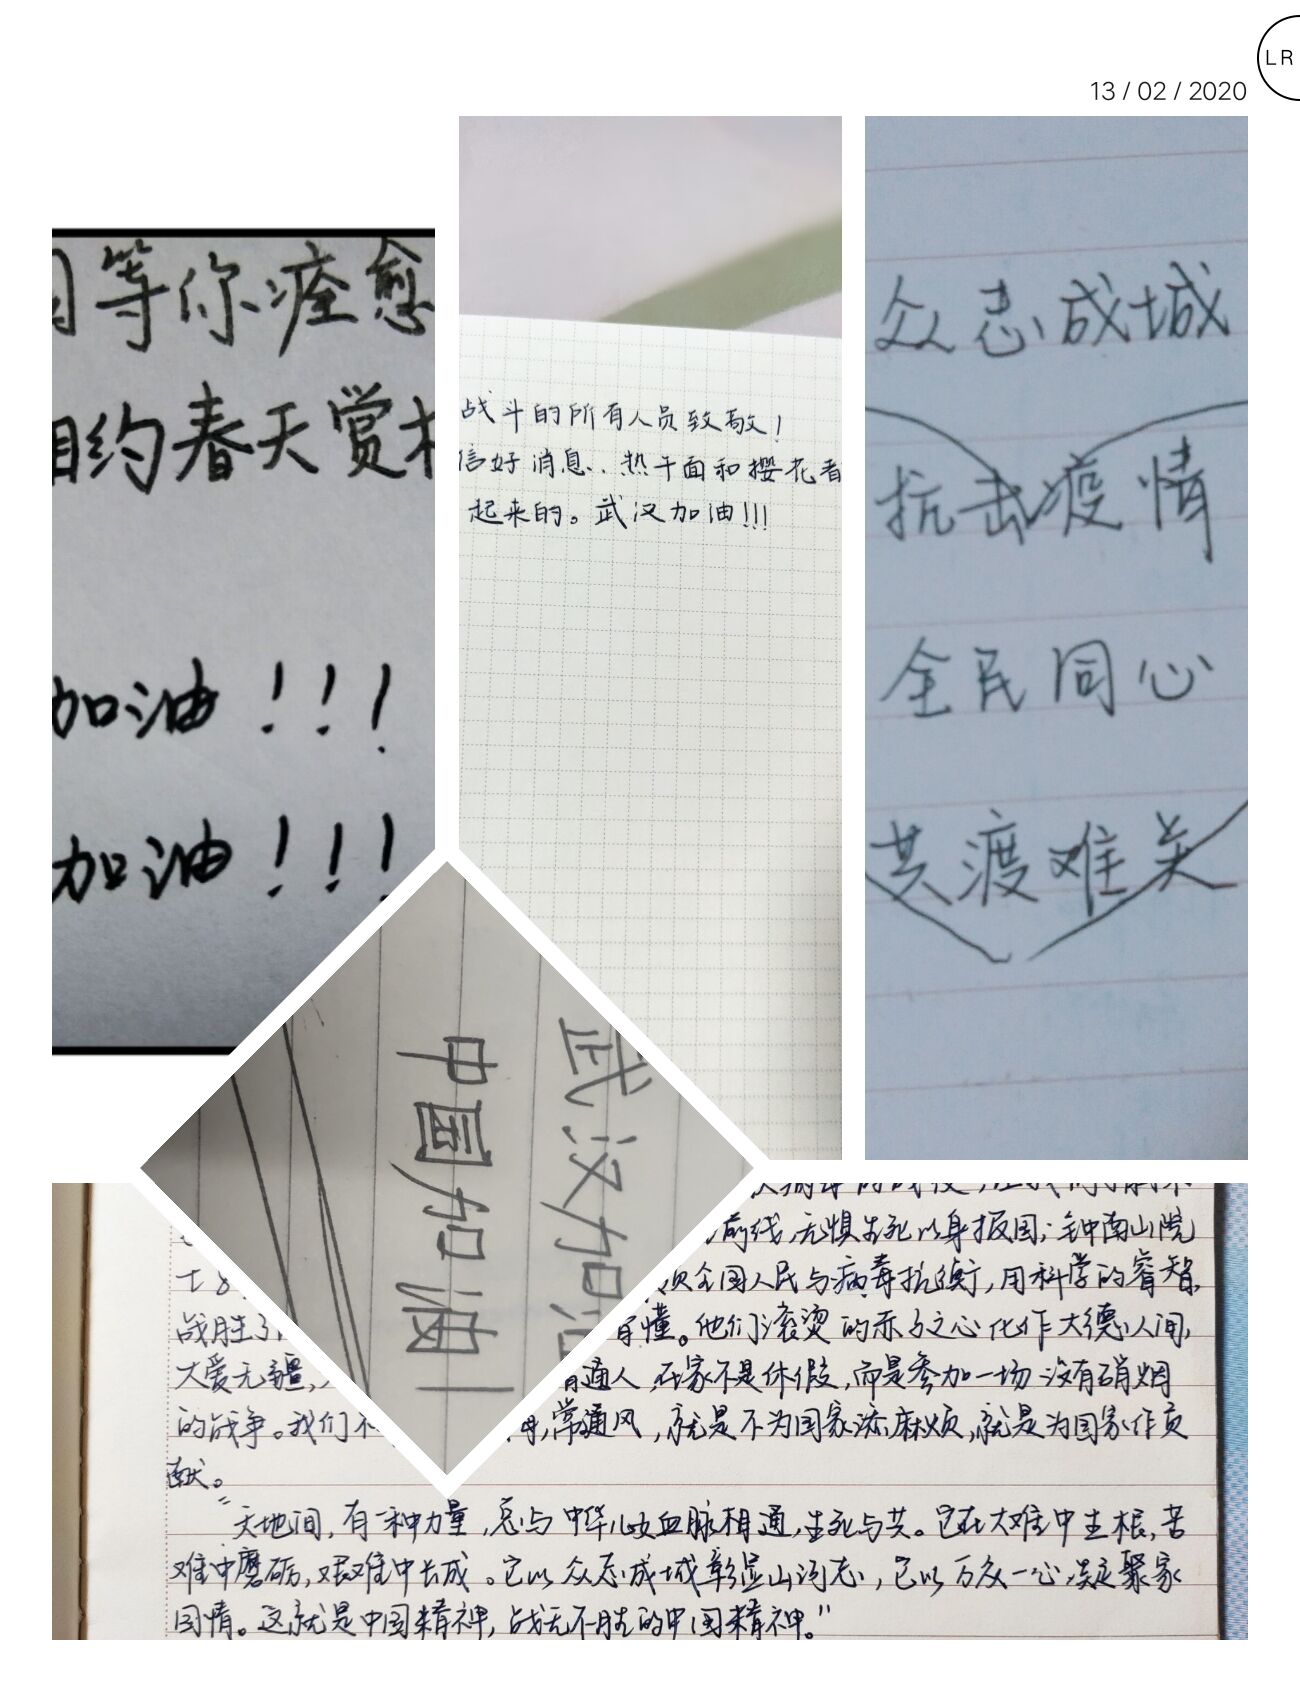 LR
13 / 02 / 2020
等你痊愈
相约春天赏
加油！！！
加油！！！
战斗的所有人员致敬！
信好消息..热干面和樱花看
起来的。武汉加油!!!
众志成城
抗击疫情
全民同心
共渡难关
武汉加油
中国加油！
前线,无惧生死以身报国；钟南山院
士 全国人民与病毒抗衡,用科学的睿智,
战胜 懂。他们滚烫的赤子之心化作大德人间,
大爱无疆, 普通人,在家不是休假,而是参加一场没有硝烟
的战争。我们 常通风,就是不为国家添麻烦,就是为国家作贡
献。
“天地间,有一种力量,总与中华儿女血脉相通,生死与共。它在大难中生根,苦
难中磨砺,艰难中长成。它以众志成城彰显山河志,它以万众一心凝聚家
国情。这就是中国精神,战无不胜的中国精神。”